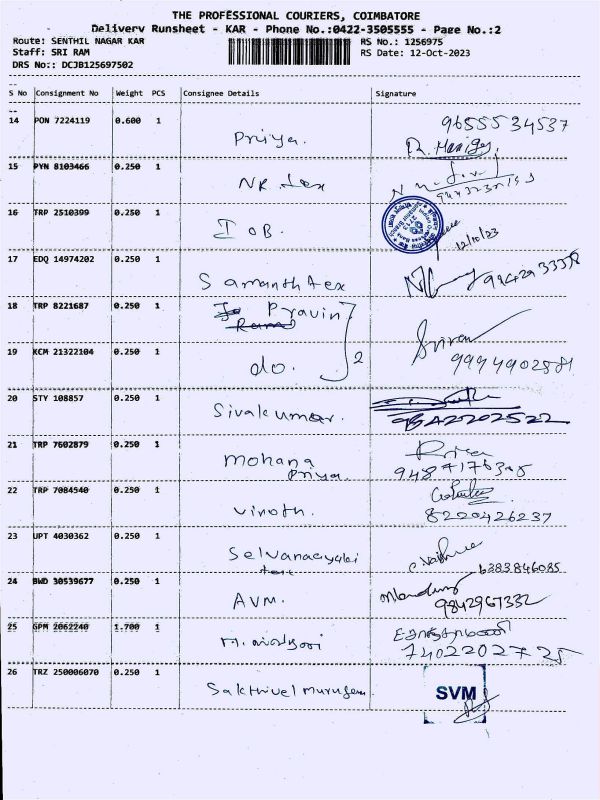 THE PROFESSIONAL COURIERS, COIMBATORE
Delivery Runsheet - KAR - Phone No.:0422-3505555 - Page No.:2
Route: SENTHIL NAGAR KAR RS No.: 1256975
Staff: SRI RAM RS Date: 12-Oct-2023
DRS No:: DCJB125697502
S No Consignment No Weight PCS Consignee Details Signature
14 PON 7224119 0.600 1 Priya. 9655534537
15 PYN 8103466 0.250 1 NK tex
16 TRP 2510399 0.250 1 IOB. 12/10/23
17 EDQ 14974202 0.250 1 Samanth tex
18 TRP 8221687 0.250 1 Pravin
19 KCM 21322104 0.250 1 do. 2 9994902581
20 STY 108857 0.250 1 Sivakumar.
21 TRP 7602879 0.250 1 Mohana
Priya.
22 TRP 7084540 0.250 1 Vinoth. 8220426237
23 UPT 4030362 0.250 1 6383846085
24 BWD 30539677 0.250 1 AVM. 9842967332
25 GPM 2062240 1.700 1 7402202725
26 TRZ 250006070 0.250 1 Sakthivel murugan SVM